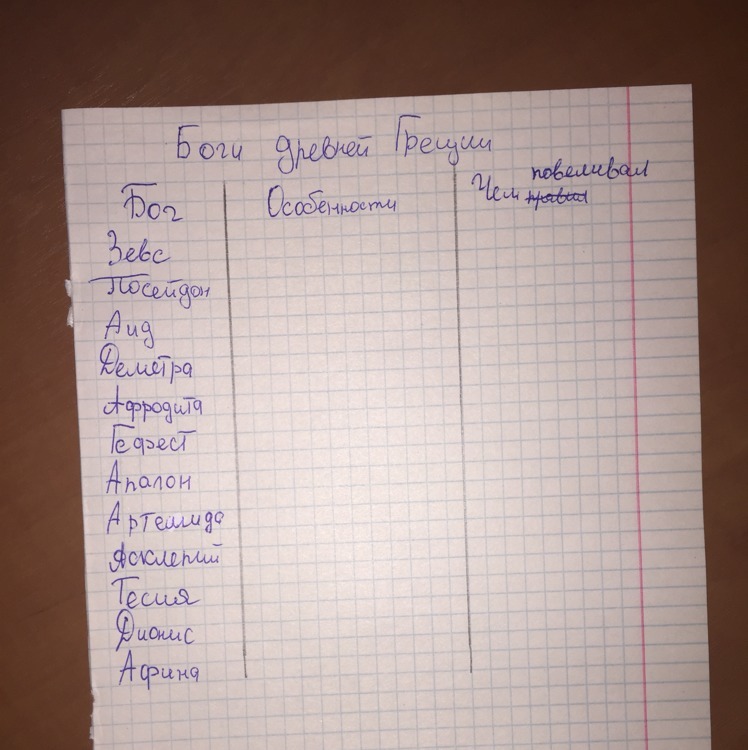 Боги древней Греции
Бог Особенности Чем правил повеливал
Зевс
Посейдон
Аид
Деметра
Афродита
Гефест
Апалон
Артемида
Асклепий
Гесия
Дионис
Афина